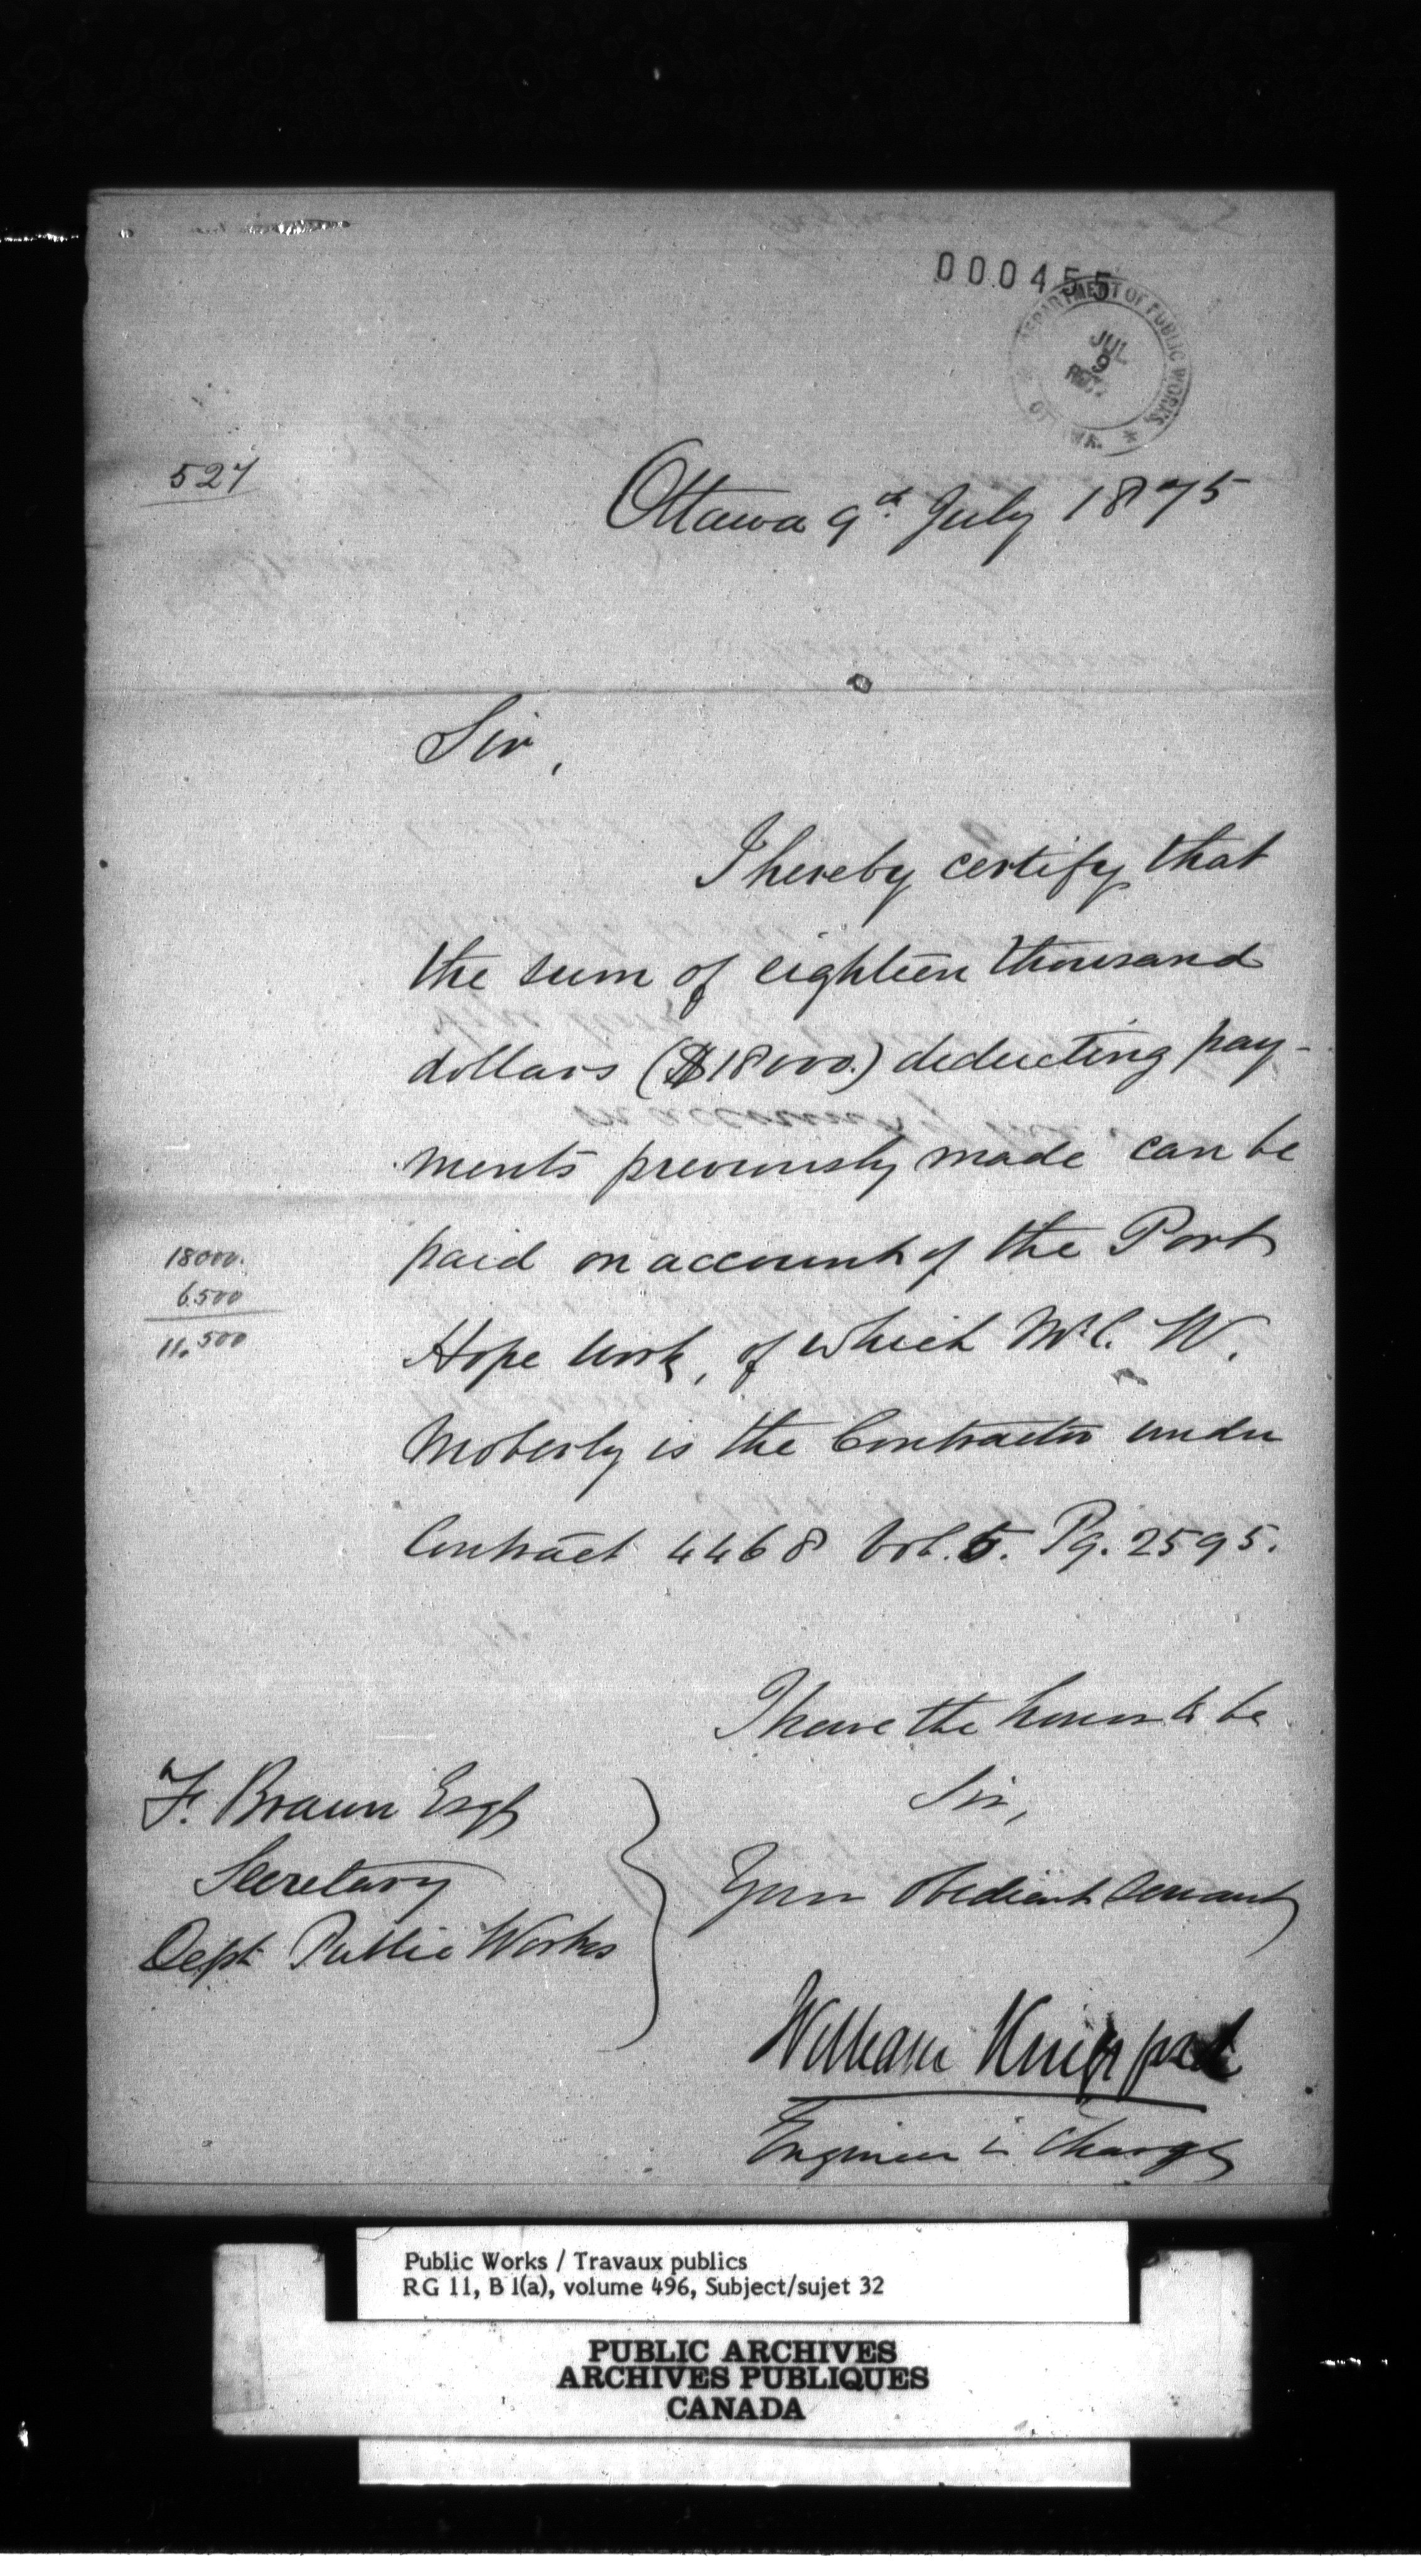 000455
DEPARTMENT OF PUBLIC WORKS
JUL
9
OTTAWA
527
Ottawa 9th July 1875
Sir,
I hereby certify that
the sum of eighteen thousand
dollars ($18000.) deducting pay-
ments previously made can be
paid on account of the Port
Hope work, of which Mr C. W.
Moberly is the Contractor under
Contract 4468 Vol. 5. Pg. 2595.
18000.
6.500
11.500
I have the honor to be
Sir,
Your Obedient Servant
F. Braun Esqr
Secretary
Dept Public Works
William
Engineer in Charge
Public Works / Travaux publics
RG 11, B 1(a), volume 496, Subject/sujet 32
PUBLIC ARCHIVES
ARCHIVES PUBLIQUES
CANADA